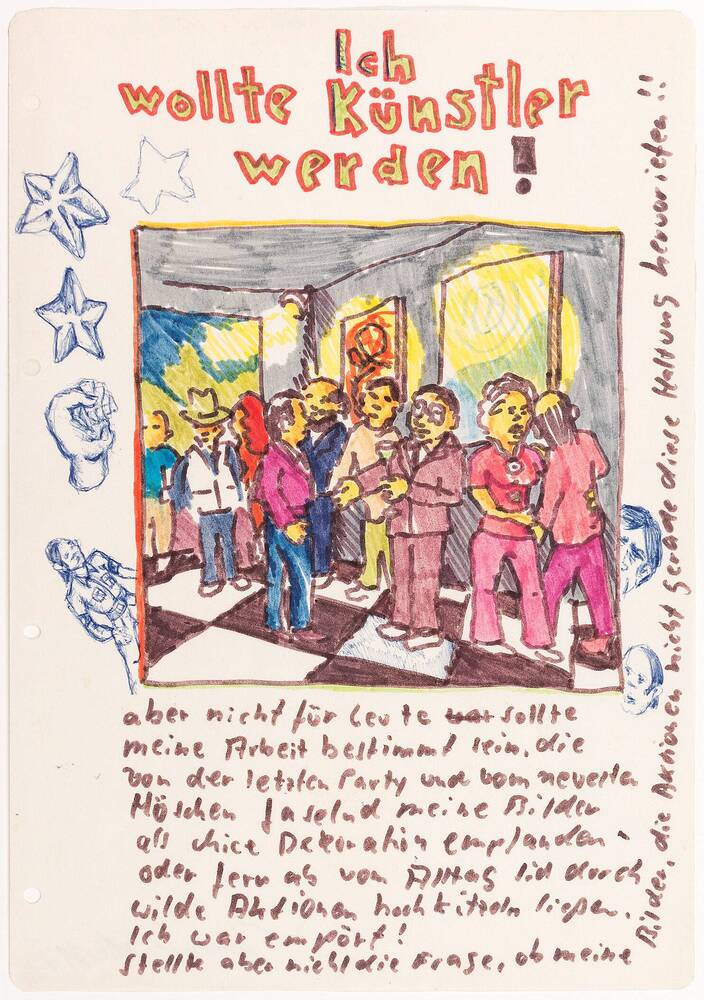 Ich
wollte Künstler
werden!
aber nicht für Leute war sollte
meine Arbeit bestimmt sein, die
von der letzten Party und vom neuesten
Höschen faselnd meine Bilder
als chice Dekoration empfanden -
oder fern ab vom Alltag sich durch
wilde Aktionen hochkitzeln ließen.
Ich war empört!
Stellte aber nicht die Frage, ob meine
Bilder, die Aktionen nicht gerade diese Haltung hervorriefen!!